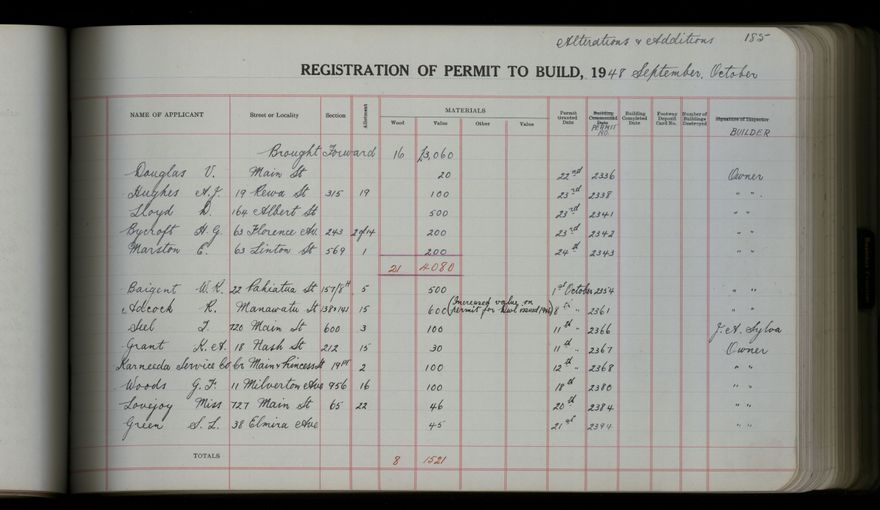 Alterations & Additions 185
REGISTRATION OF PERMIT TO BUILD, 1948 September, October
NAME OF APPLICANT Street or Locality Section Allotment MATERIALS Wood Value Other Value Permit Granted Date Building Commenced Date PERMIT NO. Building Completed Date Footway Deposit Card No. Number of Buildings Destroyed Signature of Inspector BUILDER
Brought Forward 16 £3,060
Douglas V. Main St 20 22nd 2336 Owner
Hughes A.J. 19 Rewa St 315 19 100 23rd 2338 " "
Lloyd D. 164 Albert St 500 23rd 2341 " "
Bycroft H.G. 63 Florence Ave 243 200 23rd 2342 " "
Marston E. 63 Linton St 569 1 200 24th 2343 " "
21 4080
Baigent W.R. 22 Pahiatua St 157/8 5 500 1st October 2354 " "
Adcock R. Manawatu St 138+141 15 600 (Increased value on permit for issued 1946) 8th " 2361 " "
Seel T. 720 Main St 600 3 100 11th " 2366 J.A. Sylva
Grant K.A. 18 Nash St 212 15 30 11th " 2367 Owner
Karneeda Service Co Cr Main & Princess St 19 2 100 12th " 2368 " "
Woods G.F. 11 Milverton Ave 956 16 100 18th 2380 " "
Lovejoy Miss 727 Main St 65 22 46 20th 2384 " "
Green S.L. 38 Elmira Ave 45 21st 2394 " "
TOTALS 8 1521